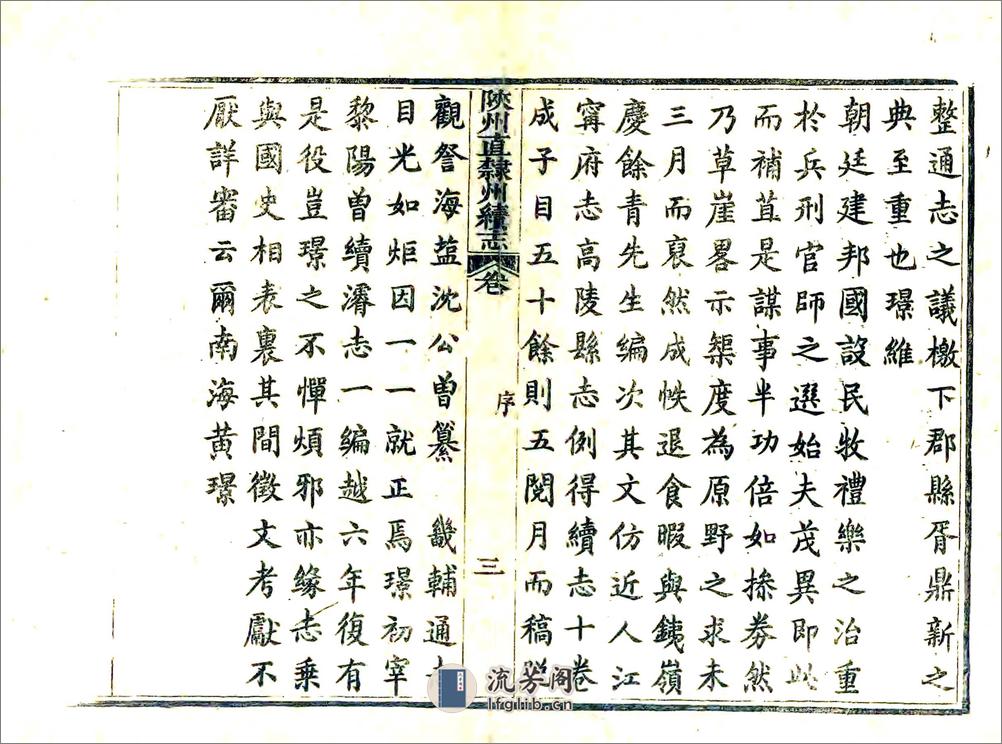 整通志之議檄下郡縣胥鼎新之
典至重也璟維
朝廷建邦國設民牧禮樂之治重
於兵刑官師之選始夫茂異即此
而補苴是謀事半功倍如掾劵然
乃草崖畧示榘度為原野之求未
三月而裒然成帙退食暇與銕嶺
慶餘青先生編次其文仿近人江
寗府志高陵縣志例得續志十卷
成子目五十餘則五閱月而稿
陝州直隸州續志 卷 序 三
觀詧海塩沈公曽纂 畿輔通
目光如炬因一一就正焉璟初宰
黎陽曽續濬志一編越六年復有
是役豈璟之不憚煩邪亦緣志乗
與國史相表裏其間徵文考獻不
厭詳審云爾南海黄璟
流芳阁
lfglib.cn